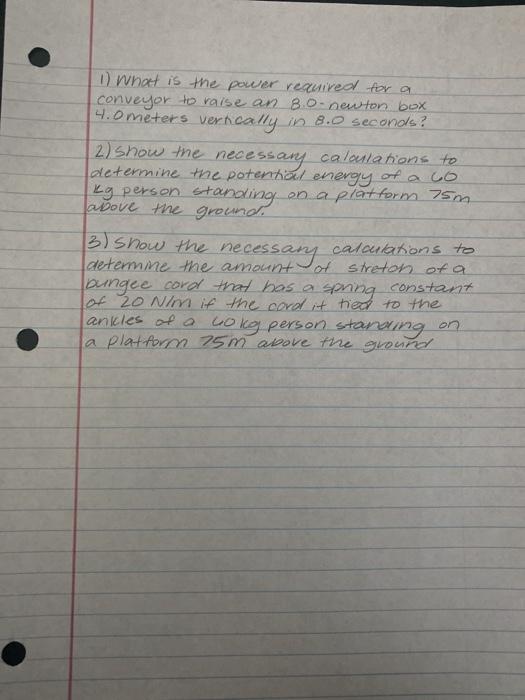 1) What is the power required for a
conveyor to raise an 8.0-newton box
4.0 meters vertically in 8.0 seconds?
2) Show the necessary calculations to
determine the potential energy of a 60
kg person standing on a platform 75m
above the ground.
3) Show the necessary calculations to
determine the amount of stretch of a
bungee cord that has a spring constant
of 20 N/m if the cord it tied to the
ankles of a 60kg person standing on
a platform 75m above the ground